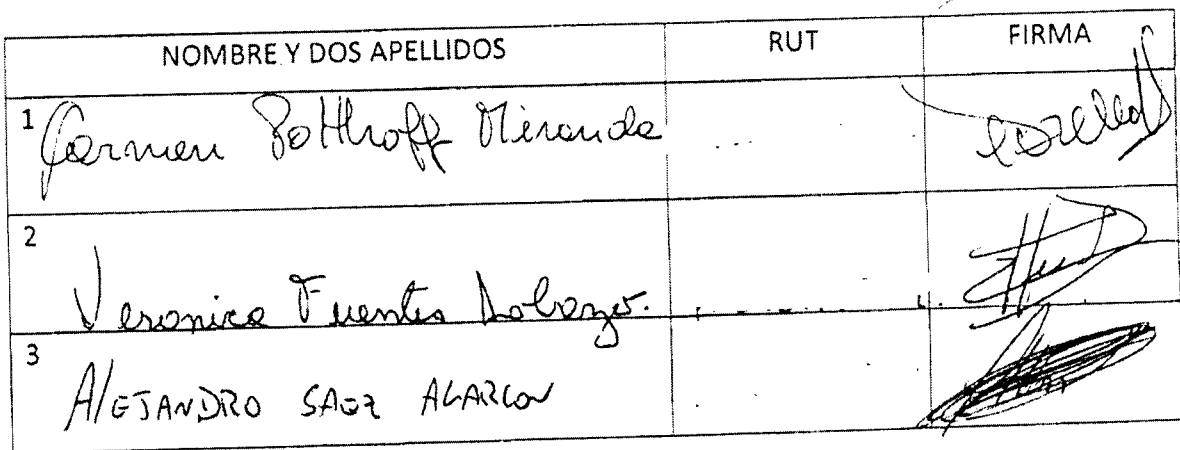 NOMBRE Y DOS APELLIDOS RUT FIRMA
1 Carmen Potthoff Miranda
2 Veronica Fuentes
3 ALEJANDRO SAEZ ALARCON